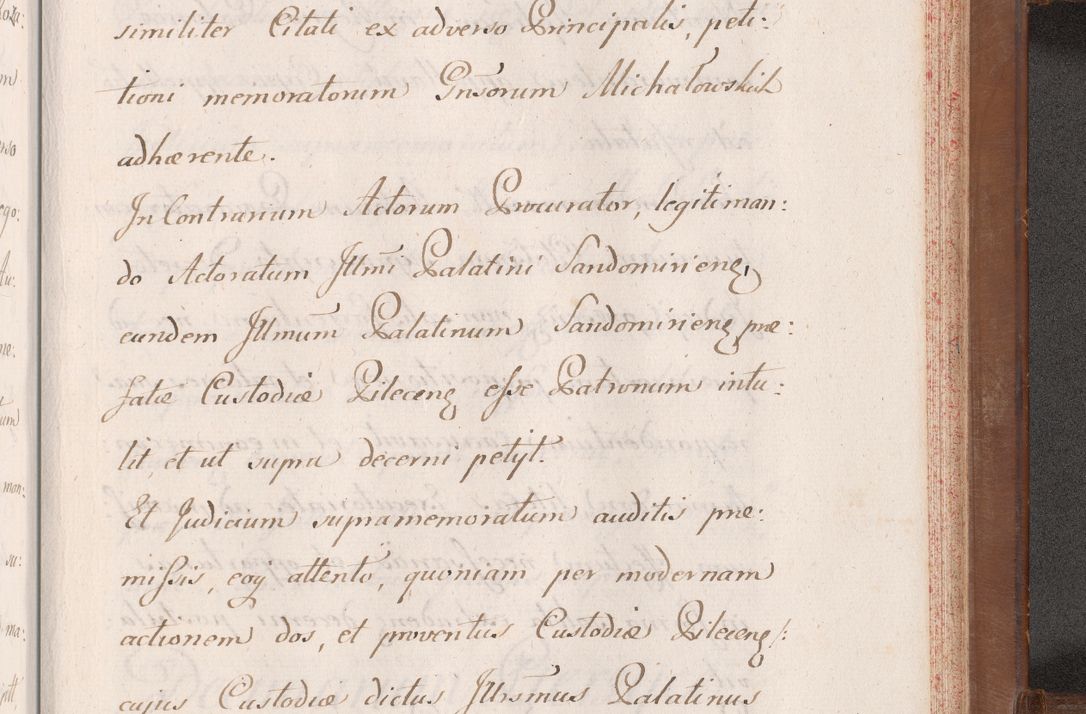 similiter Citati ex adverso Principalis, peti:
tioni memoratorum Gnsorum Michałowskich
adhærente.
In Contrarium Actorum Procurator, legitiman:
do Actoratum Jllmi Palatini Sandomirieng,
eundem Jllmum Palatinum Sandomirieng præ:
fatæ Custodiæ Pileceng esse Patronum intu:
lit, et ut supra decerni petyt.
Et Judicium supramemoratum auditis præ:
missis, eoq attento, quoniam per modernam
actionem dos, et proventus Custodiæ Pileceng /:
cujus Custodiæ dictus Jllrsmus Palatinus